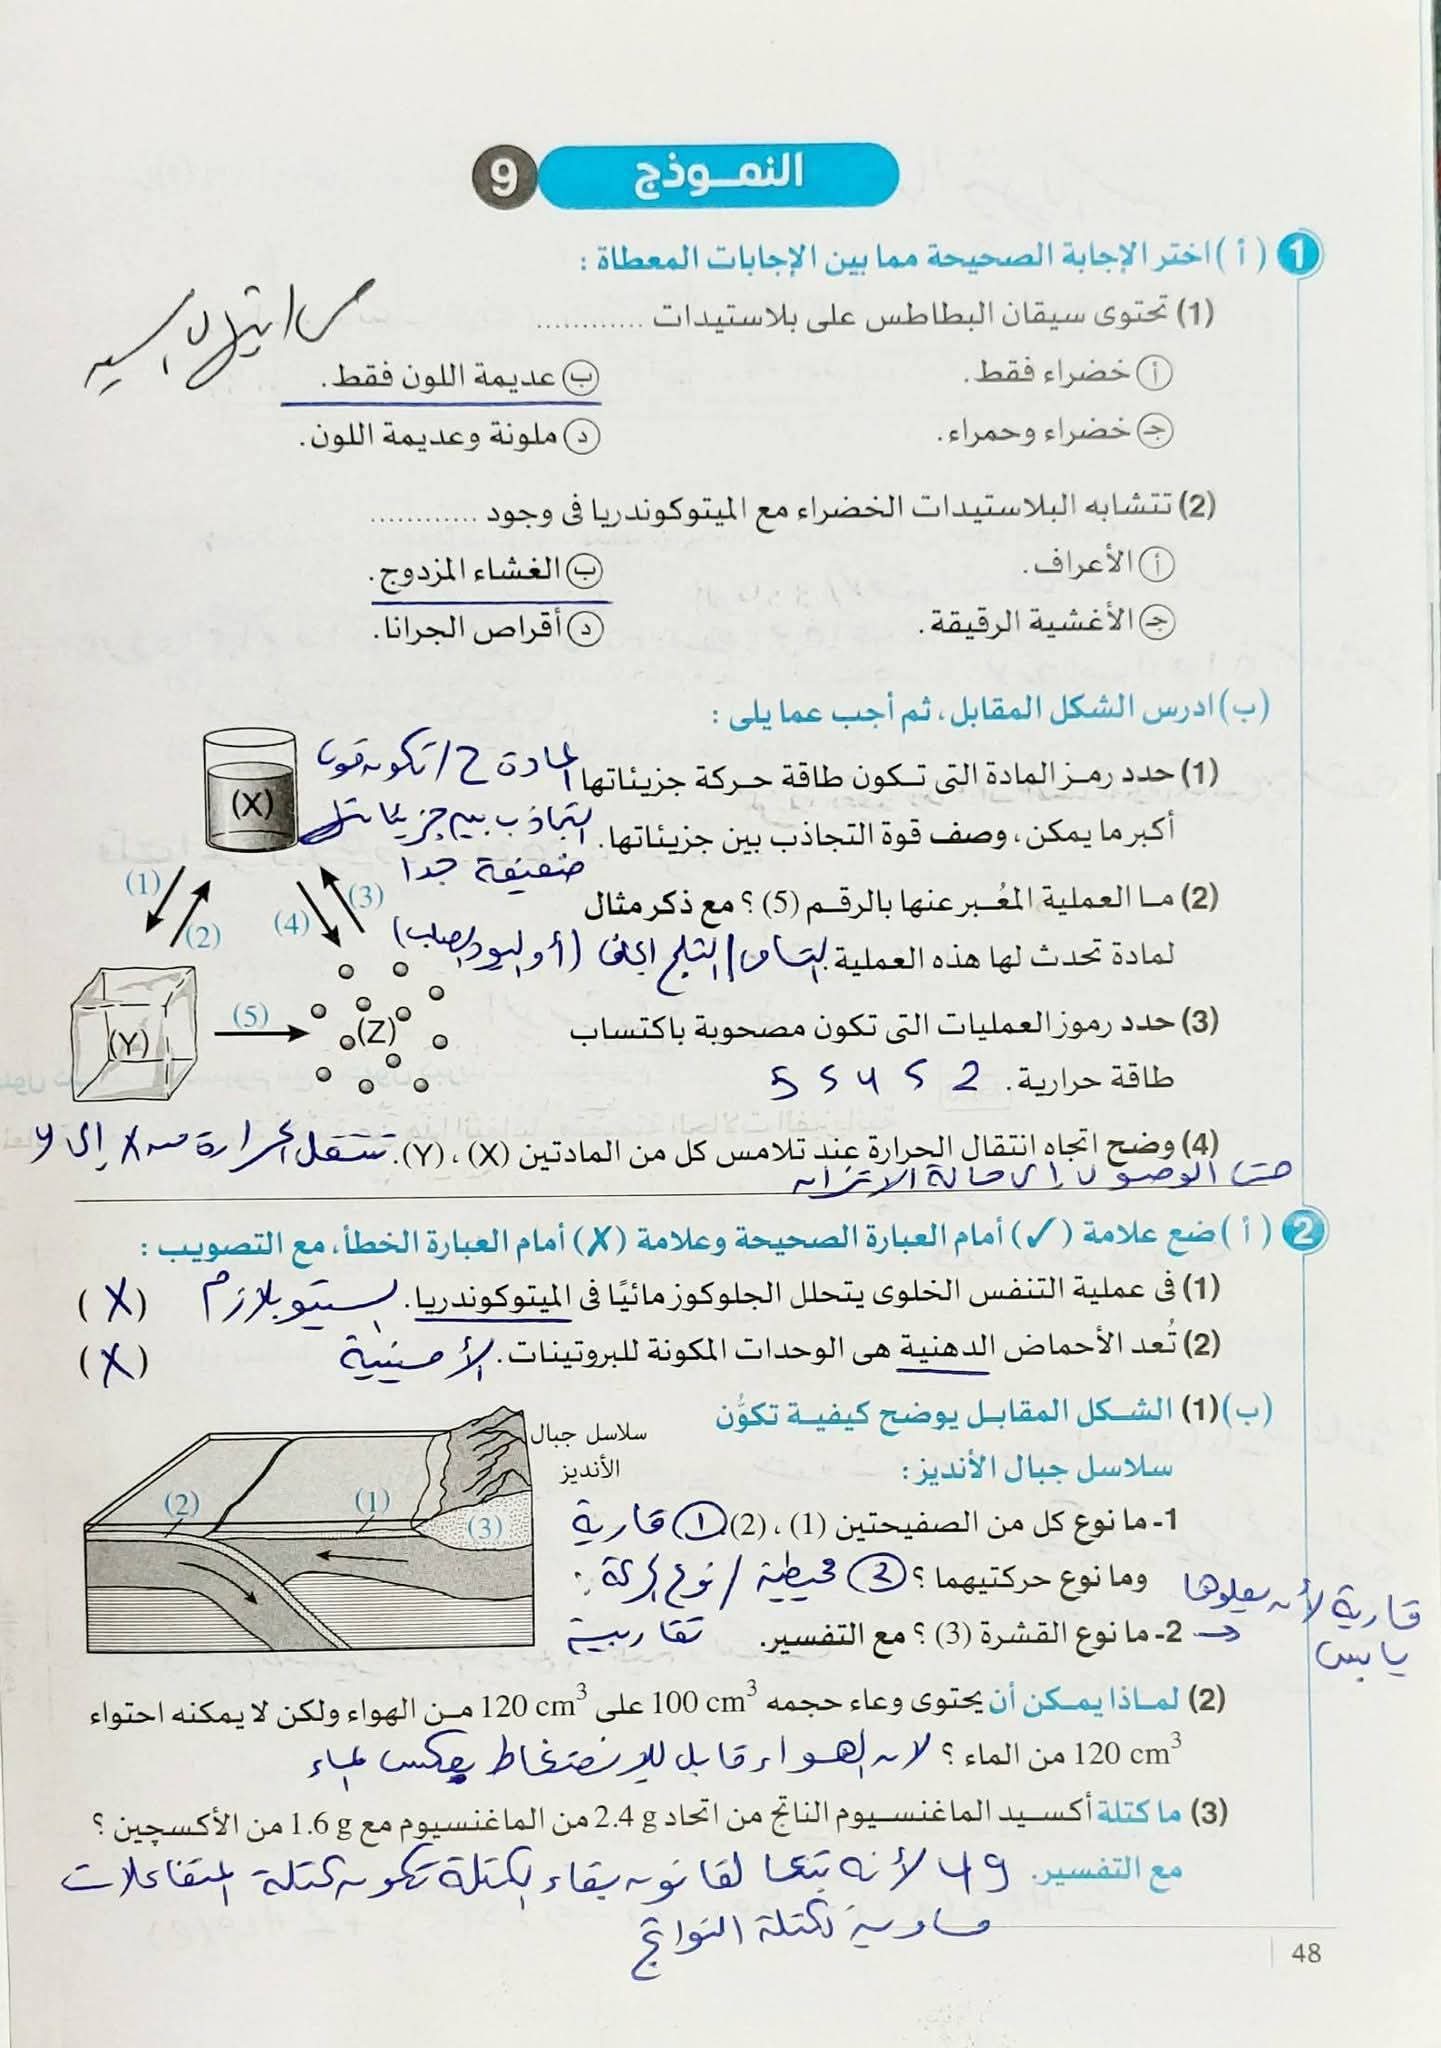 النمـوذج 9
1 ( أ ) اختر الإجابة الصحيحة مما بين الإجابات المعطاة :
(1) تحتوى سيقان البطاطس على بلاستيدات ............
أ خضراء فقط. ب عديمة اللون فقط.
جـ خضراء وحمراء. د ملونة وعديمة اللون.
(2) تتشابه البلاستيدات الخضراء مع الميتوكوندريا فى وجود ............
أ الأعراف. ب الغشاء المزدوج.
جـ الأغشية الرقيقة. د أقراص الجرانا.
(ب) ادرس الشكل المقابل، ثم أجب عما يلى :
(1) حدد رمـز المادة التى تـكون طاقة حـركة جزيئاتها المادة / تكون قوى
أكبر ما يمكن، وصف قوة التجاذب بين جزيئاتها. التجاذب بين جزيئاتها
ضعيفة جدا
(2) مـا العملية المُعـبر عنها بالرقـم (5) ؟ مع ذكر مثال
لمادة تحدث لها هذه العملية. التسامى / الثلج الجاف (أو اليود الصلب)
(3) حدد رموز العمليات التى تكون مصحوبة باكتساب
طاقة حرارية. 2 و 4 و 5
(4) وضح اتجاه انتقال الحرارة عند تلامس كل من المادتين (X) ، (Y). تنتقل الحرارة من X إلى Y
حتى الوصول إلى حالة الاتزان
(X)
(1) (2) (4) (3)
(Y) (5) (Z)
2 ( أ ) ضع علامة (✓) أمام العبارة الصحيحة وعلامة (✗) أمام العبارة الخطأ، مع التصويب :
(1) فى عملية التنفس الخلوى يتحلل الجلوكوز مائيًا فى الميتوكوندريا. السيتوبلازم (X)
(2) تُعد الأحماض الدهنية هى الوحدات المكونة للبروتينات. الأمينية (X)
(ب) (1) الشـكل المقابـل يوضح كيفيـة تكوُّن
سلاسـل جبال الأنديز :
1- ما نوع كل من الصفيحتين (1) ، (2) 1 قارية
وما نوع حركتيهما ؟ 2 محيطية / نوع الحركة :
تقاربية
2- ما نوع القشرة (3) ؟ مع التفسير. قارية لأنه يعلوها
يابس
سلاسل جبال
الأنديز
(2) (1) (3)
(2) لمـاذا يمـكن أن يحتوى وعاء حجمه 100 cm³ على 120 cm³ مـن الهواء ولكن لا يمكنه احتواء
120 cm³ من الماء ؟ لان الهواء قابل للإنضغاط بعكس الماء
(3) ما كتلة أكسـيد الماغنسـيوم الناتج من اتحاد 2.4 g من الماغنسيوم مع 1.6 g من الأكسچين ؟
مع التفسير. 4g لأنه تبعا لقانون بقاء الكتلة تكون كتلة المتفاعلات
مساوية لكتلة النواتج
48